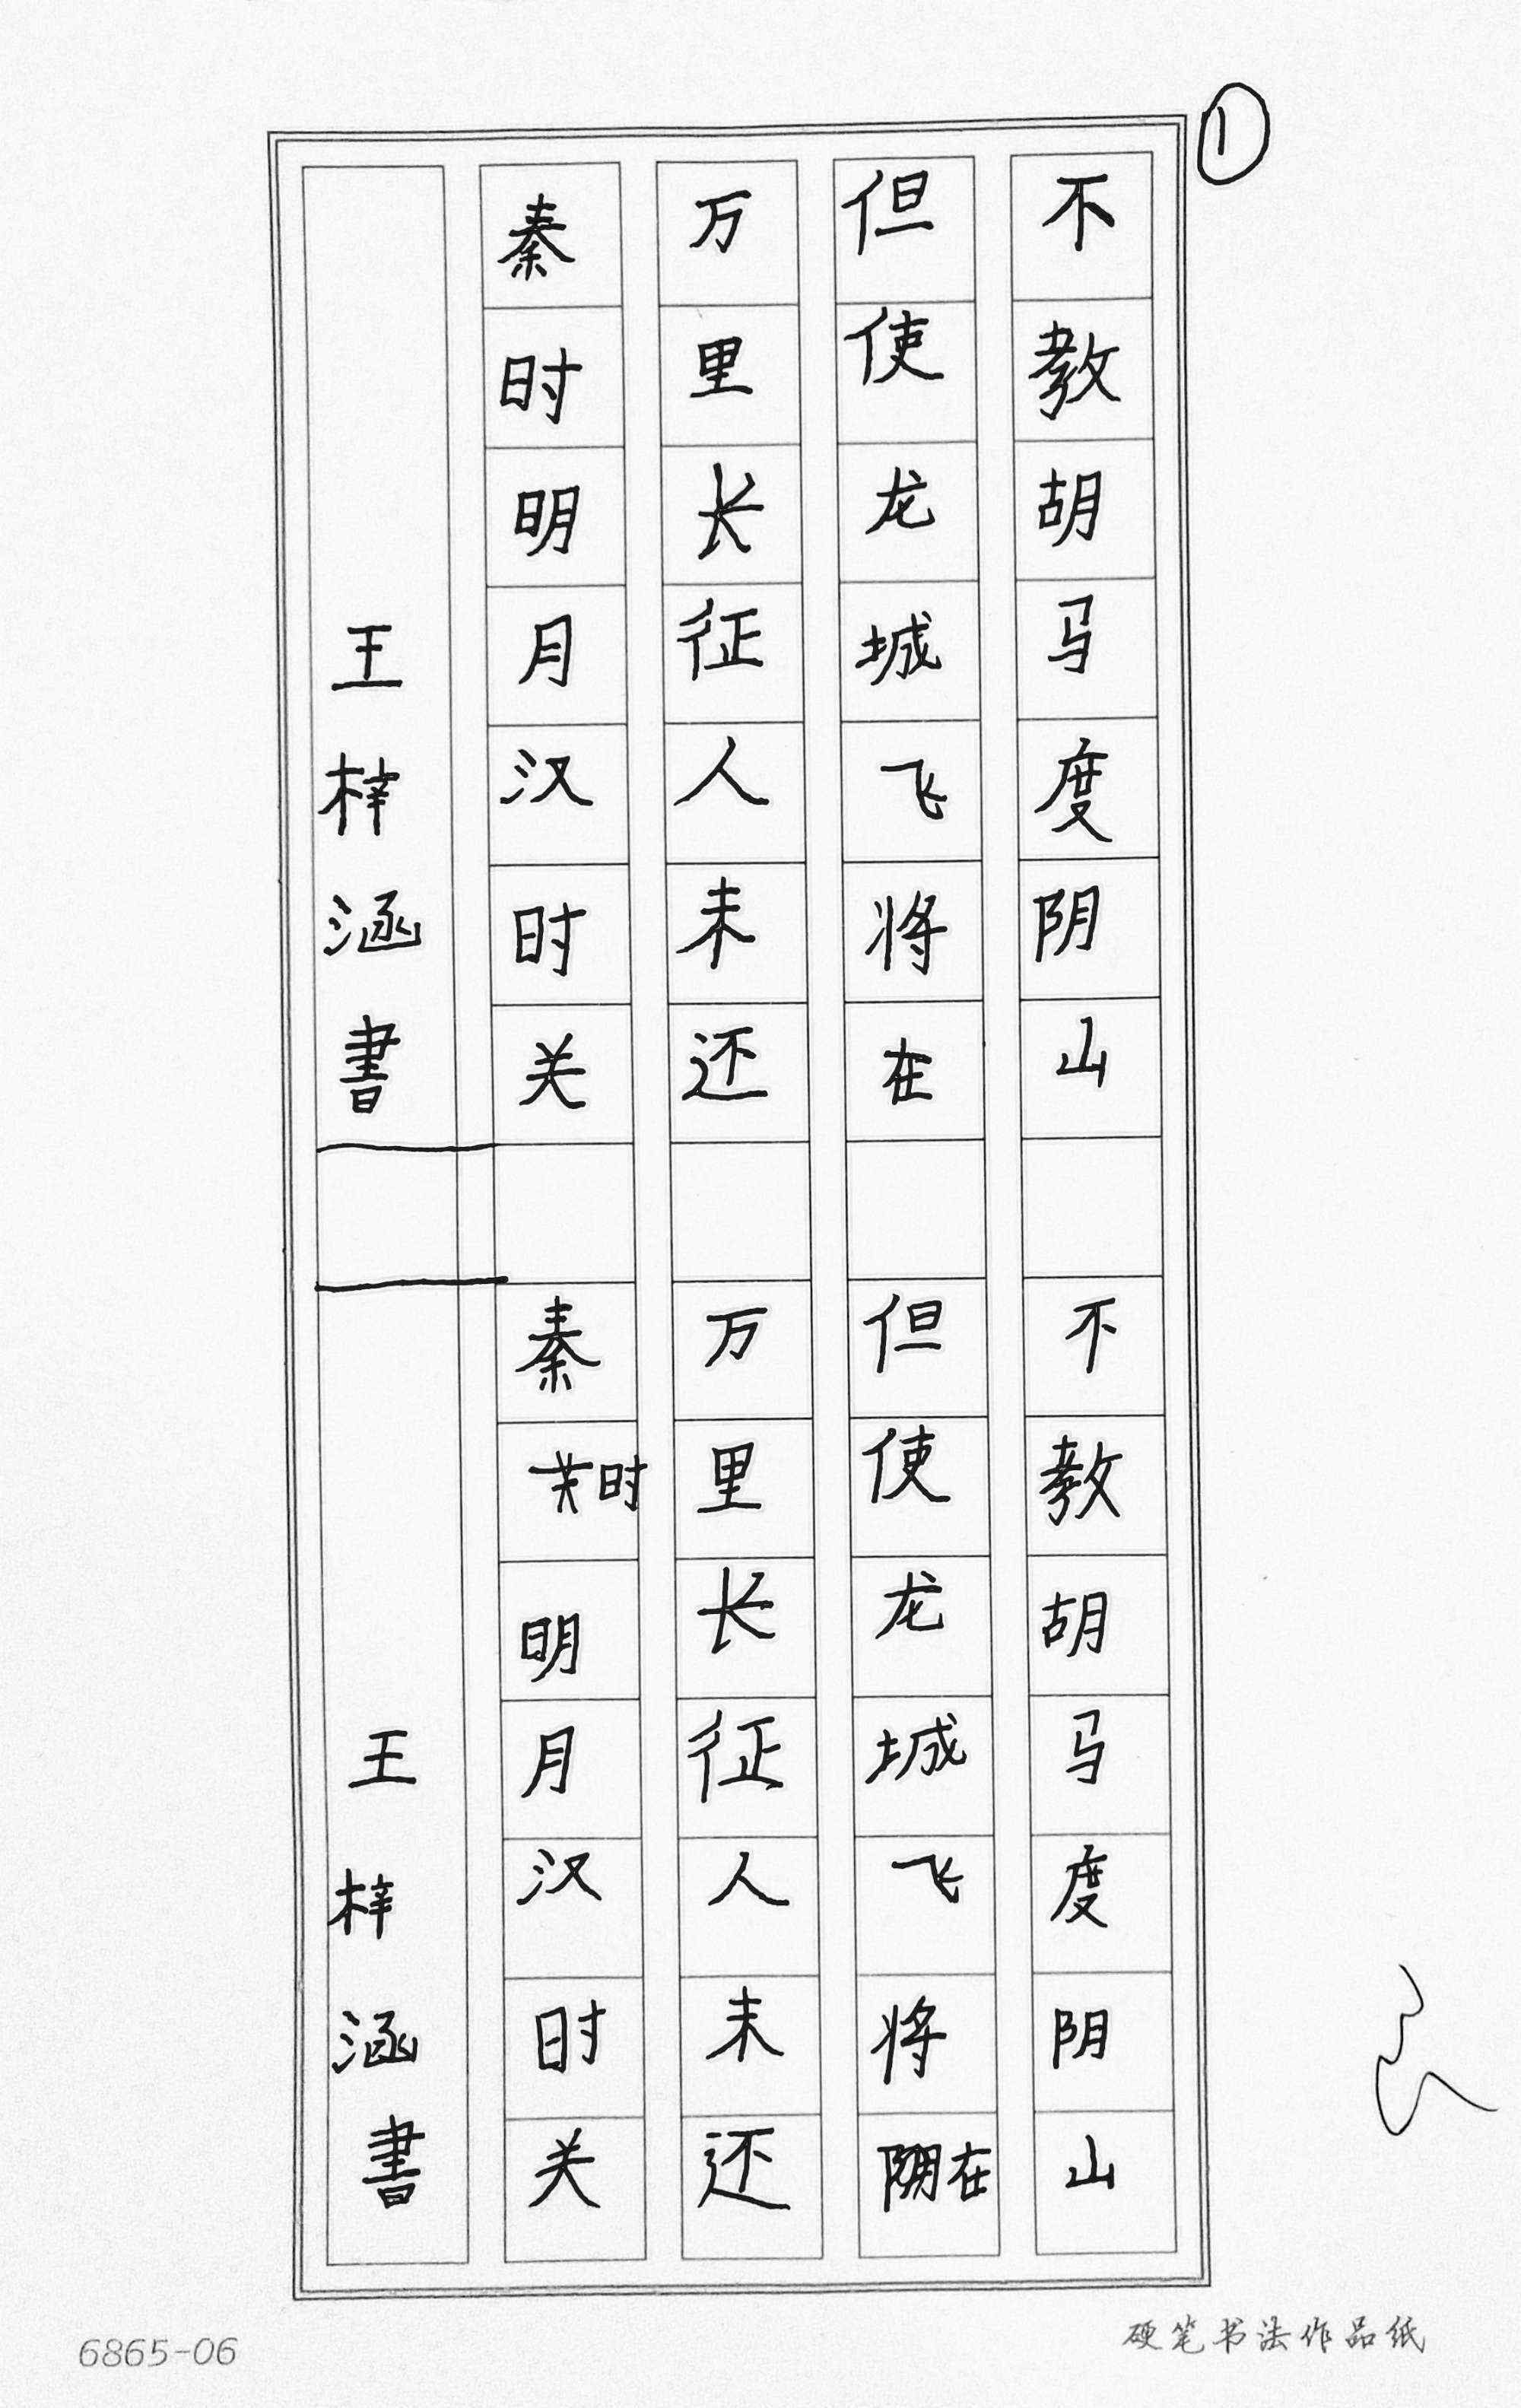 ①
不教胡马度阴山
但使龙城飞将在
万里长征人未还
秦时明月汉时关
王梓涵書
不教胡马度阴山
但使龙城飞将在
万里长征人未还
秦时明月汉时关
王梓涵書
6865-06
硬笔书法作品纸